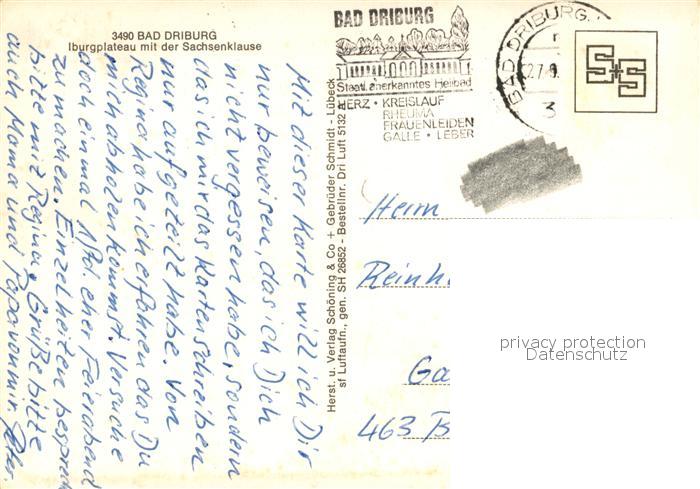 3490 BAD DRIBURG
Iburgplateau mit der Sachsenklause
Mit dieser Karte will ich Dir
nur beweisen, das ich Dich
nicht vergessen habe, sondern
das ich mir das Kartenschreiben
nur aufgeteilt habe. Von
Regina habe ich erfahren das Du
mich abholen kommst. Versuche
doch einmal 1 Std. eher Feierabend
zu machen. Einzelheiten besprech
bitte mit Regina. Grüße bitte
auch Mama und Papa von mir. Peter.
Herst. u. Verlag Schöning & Co + Gebrüder Schmidt - Lübeck
sf Luftaufn., gen. SH 26852 - Bestellnr. Dri Luft 5132
BAD DRIBURG
Staatl. anerkanntes Heilbad
HERZ • KREISLAUF
RHEUMA
FRAUENLEIDEN
GALLE • LEBER
BAD DRIBURG
27.8.
3
S+S
Herrn
Reinh
Ga
463 B
privacy protection
Datenschutz